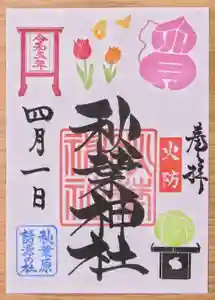 奉拝
火防
秋葉神社
令和五年
四月一日
秋葉原
語源の社